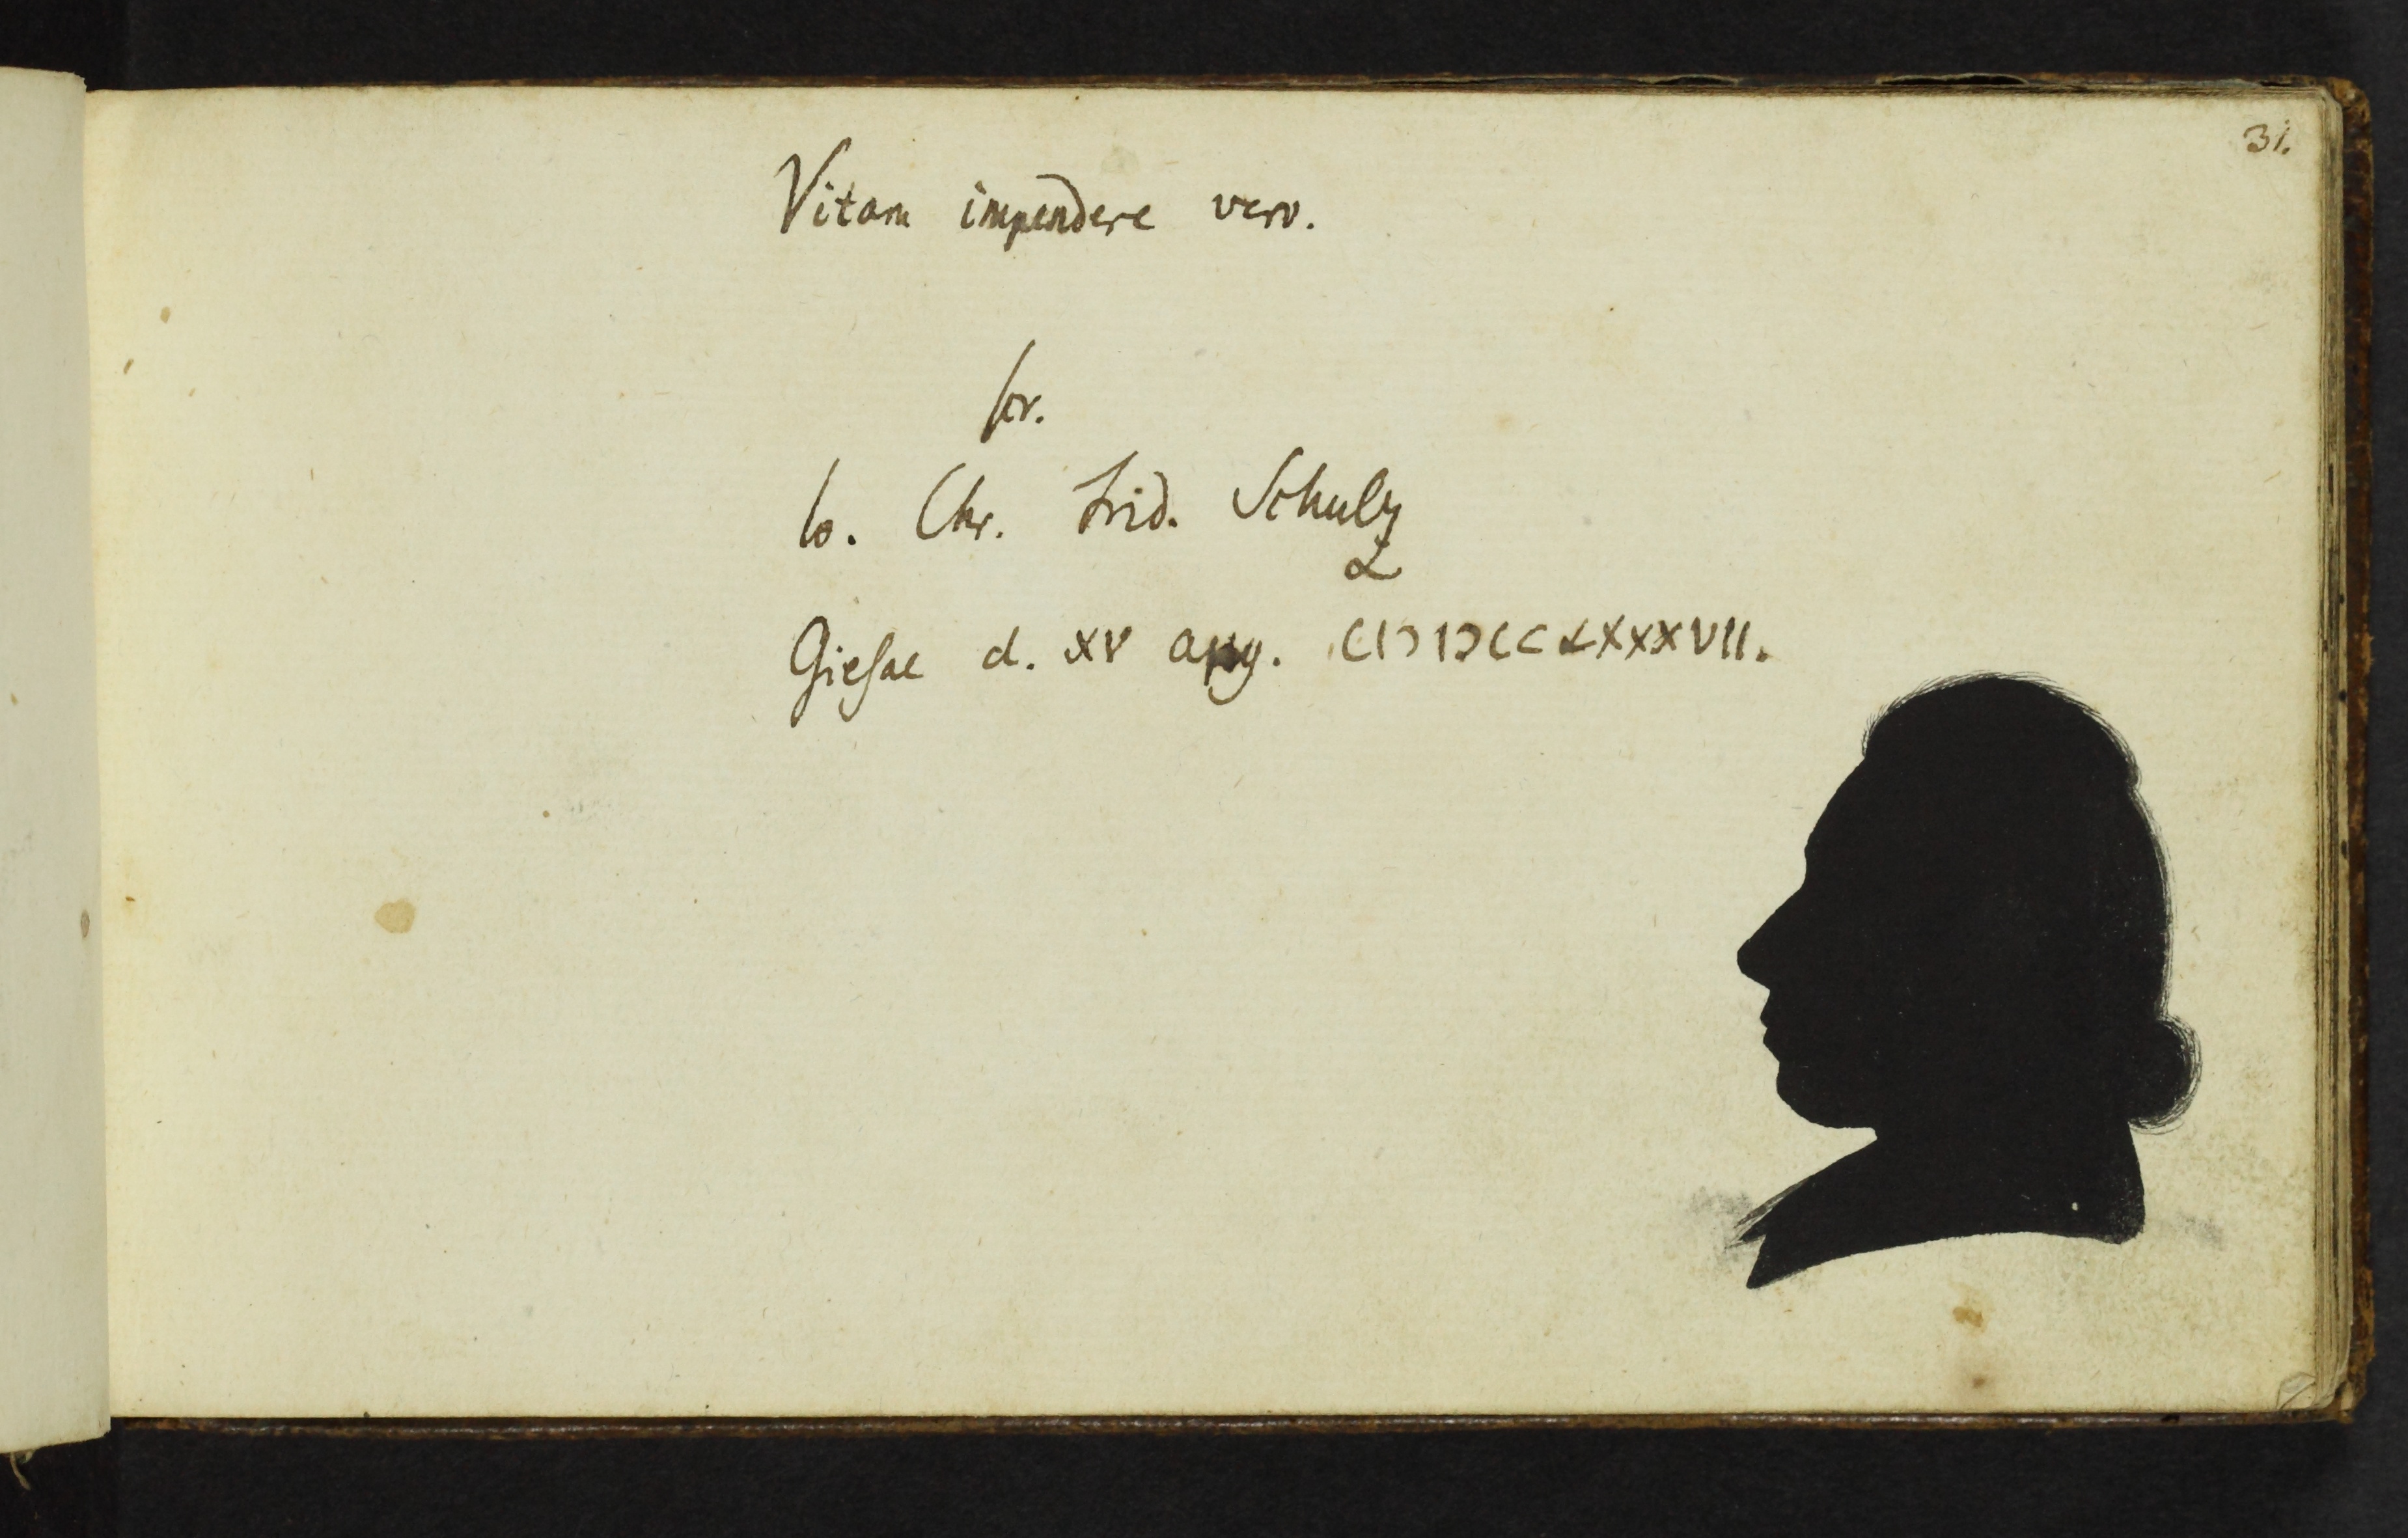 31.
Vitam impendere vero.
scr.
Io. Chr. Frid. Schulz
Giessae d. XV Aug. CIↃIↃCCLXXXVII.